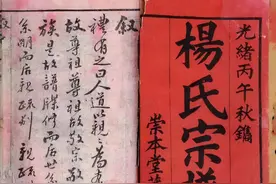 光緒丙午秋鐫
楊氏宗
崇本堂
叙
禮有之曰人道以親親為
故尊祖尊祖故敬宗敬
族是故譜牒修而后世
系明而后親疏別親疏